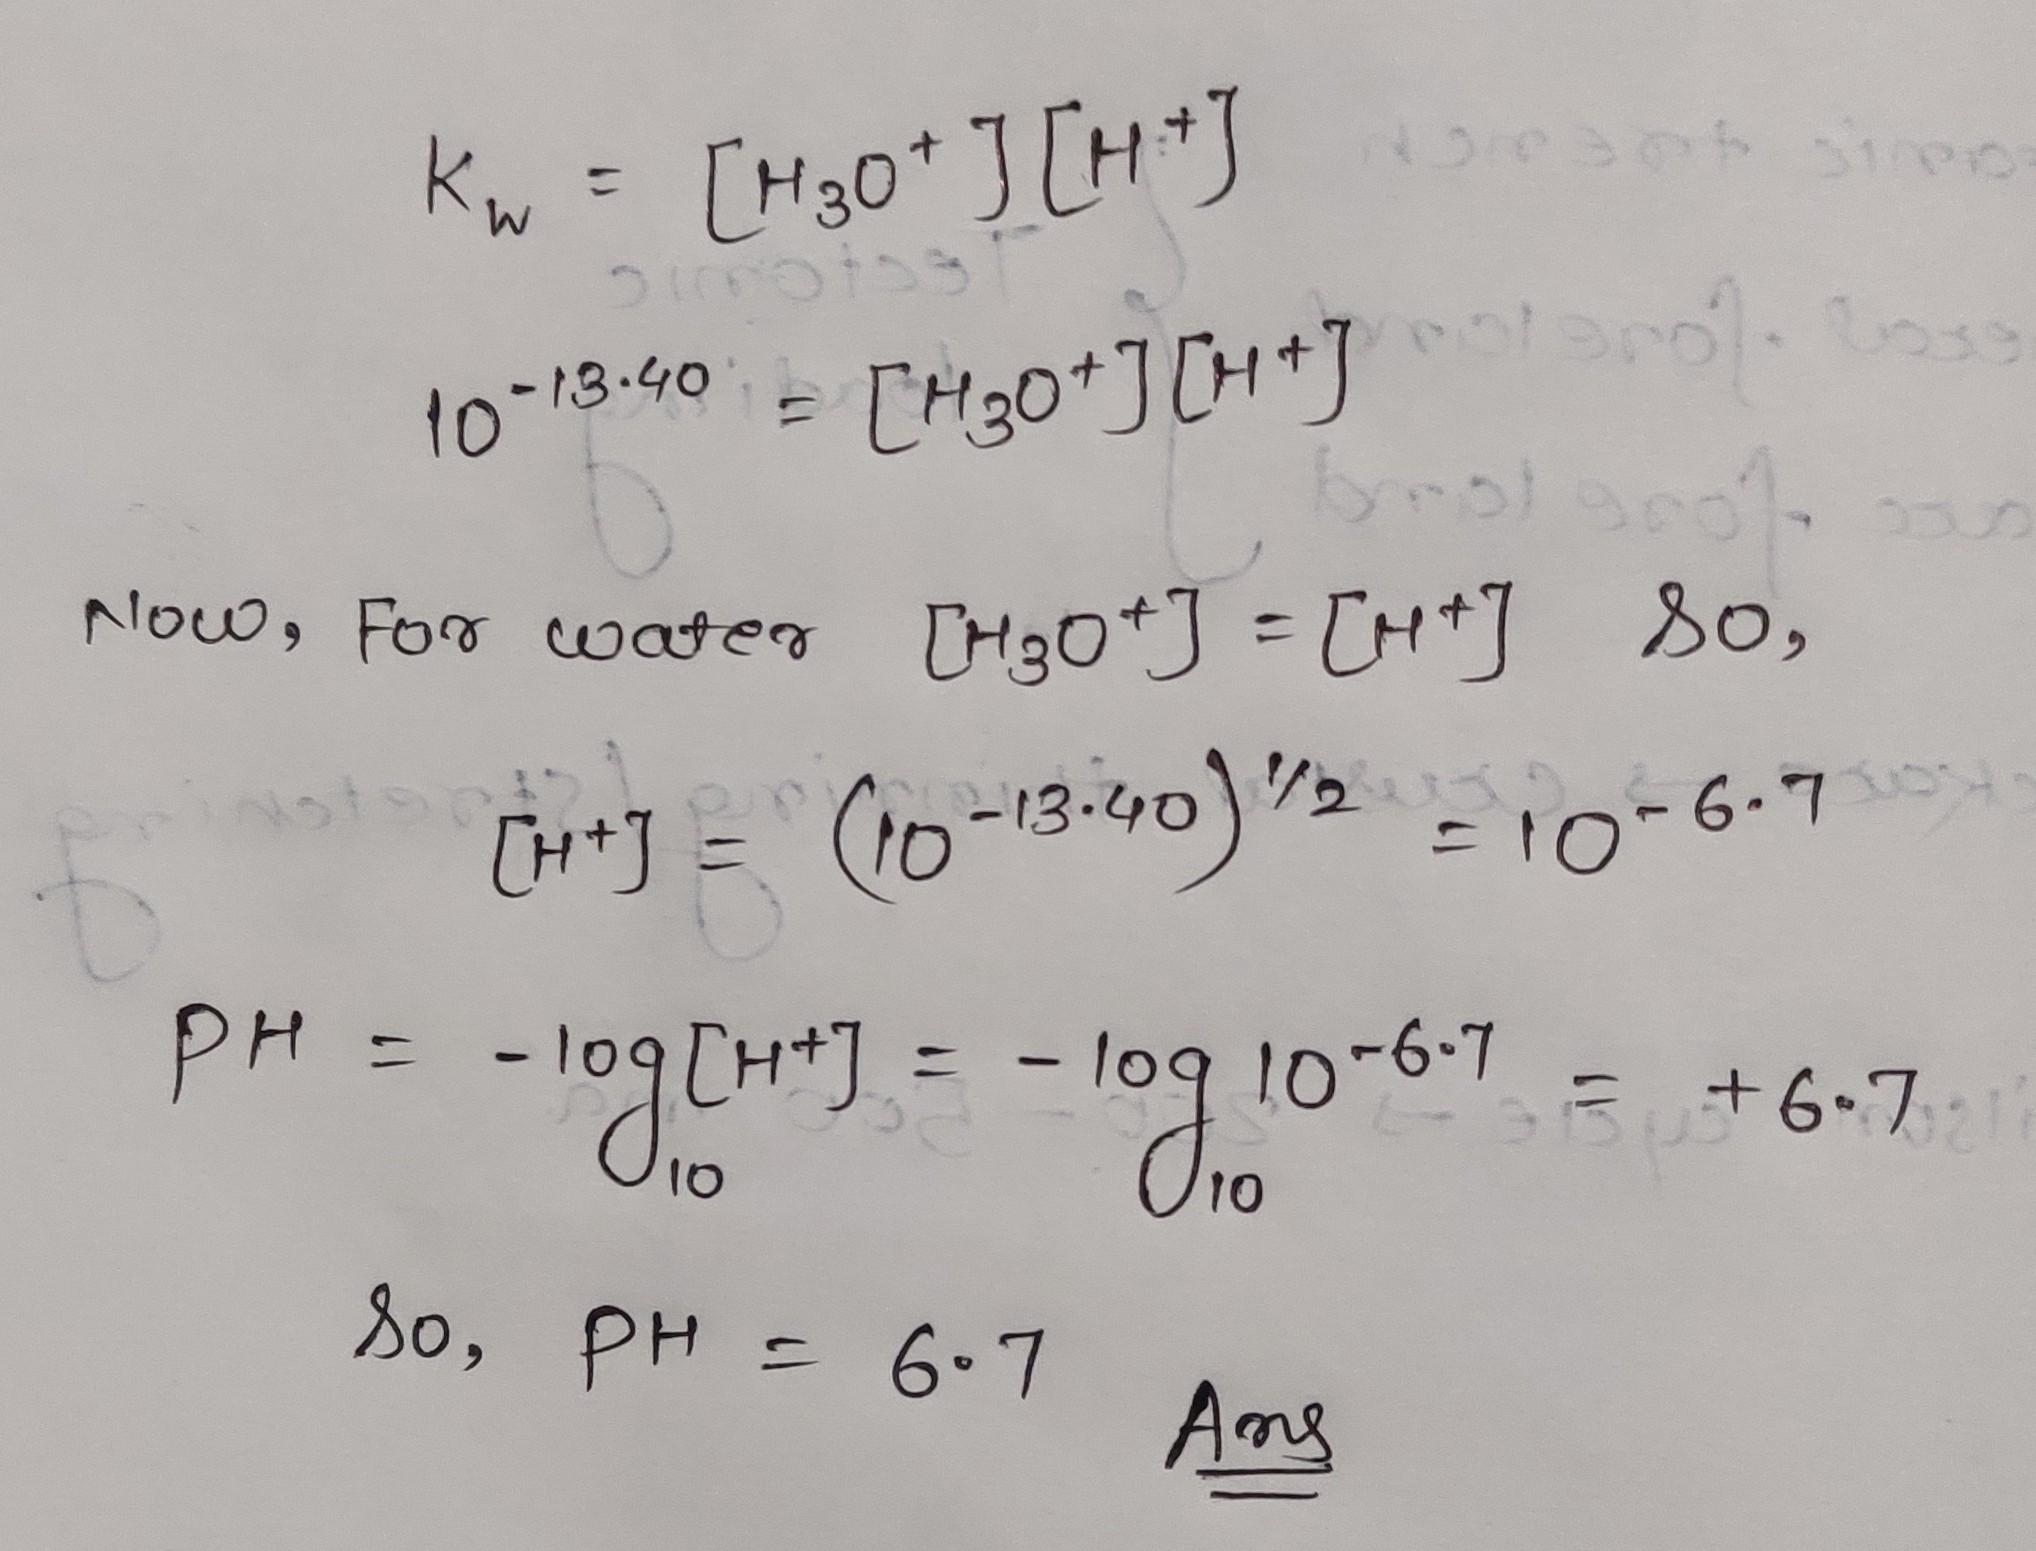 Kw = [H₃O⁺][H⁺]
10⁻¹³·⁴⁰ = [H₃O⁺][H⁺]
Now, For water [H₃O⁺] = [H⁺] So,
[H⁺] = (10⁻¹³·⁴⁰)^1/2 = 10⁻⁶·⁷
PH = -log₁₀[H⁺] = -log₁₀ 10⁻⁶·⁷ = +6.7
So, PH = 6.7
Ans